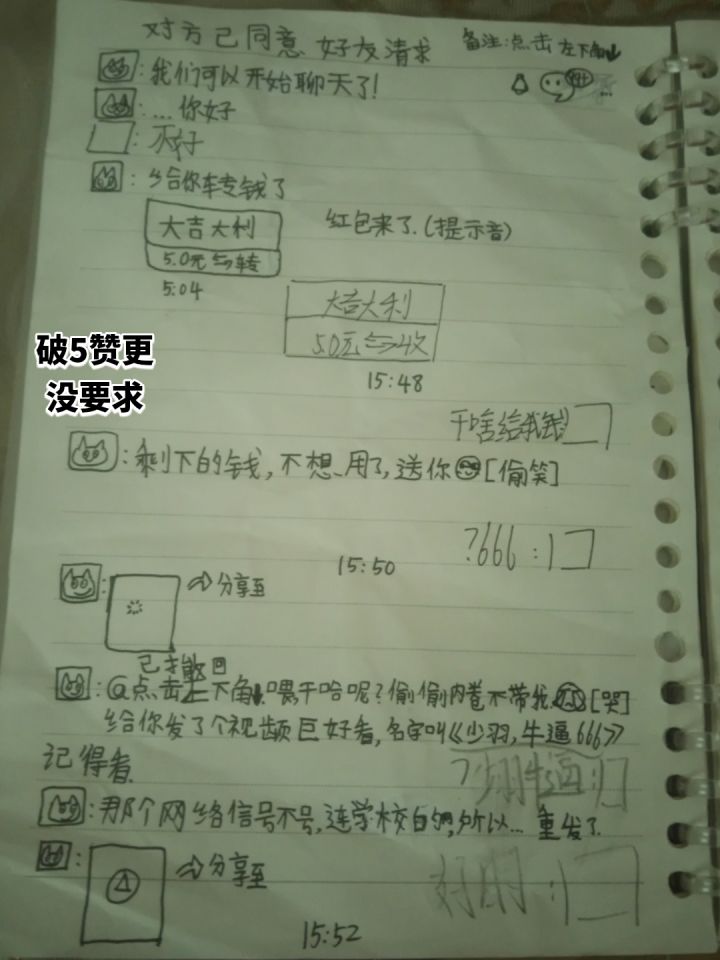 对方已同意 好友请求
备注:点击左下角↓
:我们可以开始聊天了!
99+
:...你好
:不好
:给你转钱了
大吉大利
5.0元⇋转
5:04
红包来了.(提示音)
大吉大利
5.0元⇋收
15:48
破5赞更
没要求
干啥给我钱
:剩下的钱,不想用了,送你[偷笑]
?666:
15:50
:
分享至
已撤回
:@点击左下角↓.喂干哈呢?偷偷内卷不带我[哭]
给你发了个视频巨好看,名字叫《少羽,牛逼666》
记得看
?少羽牛逼:
:那个网络信号不号,连学校自的,所以... 重发了
:
分享至
好朋:
15:52